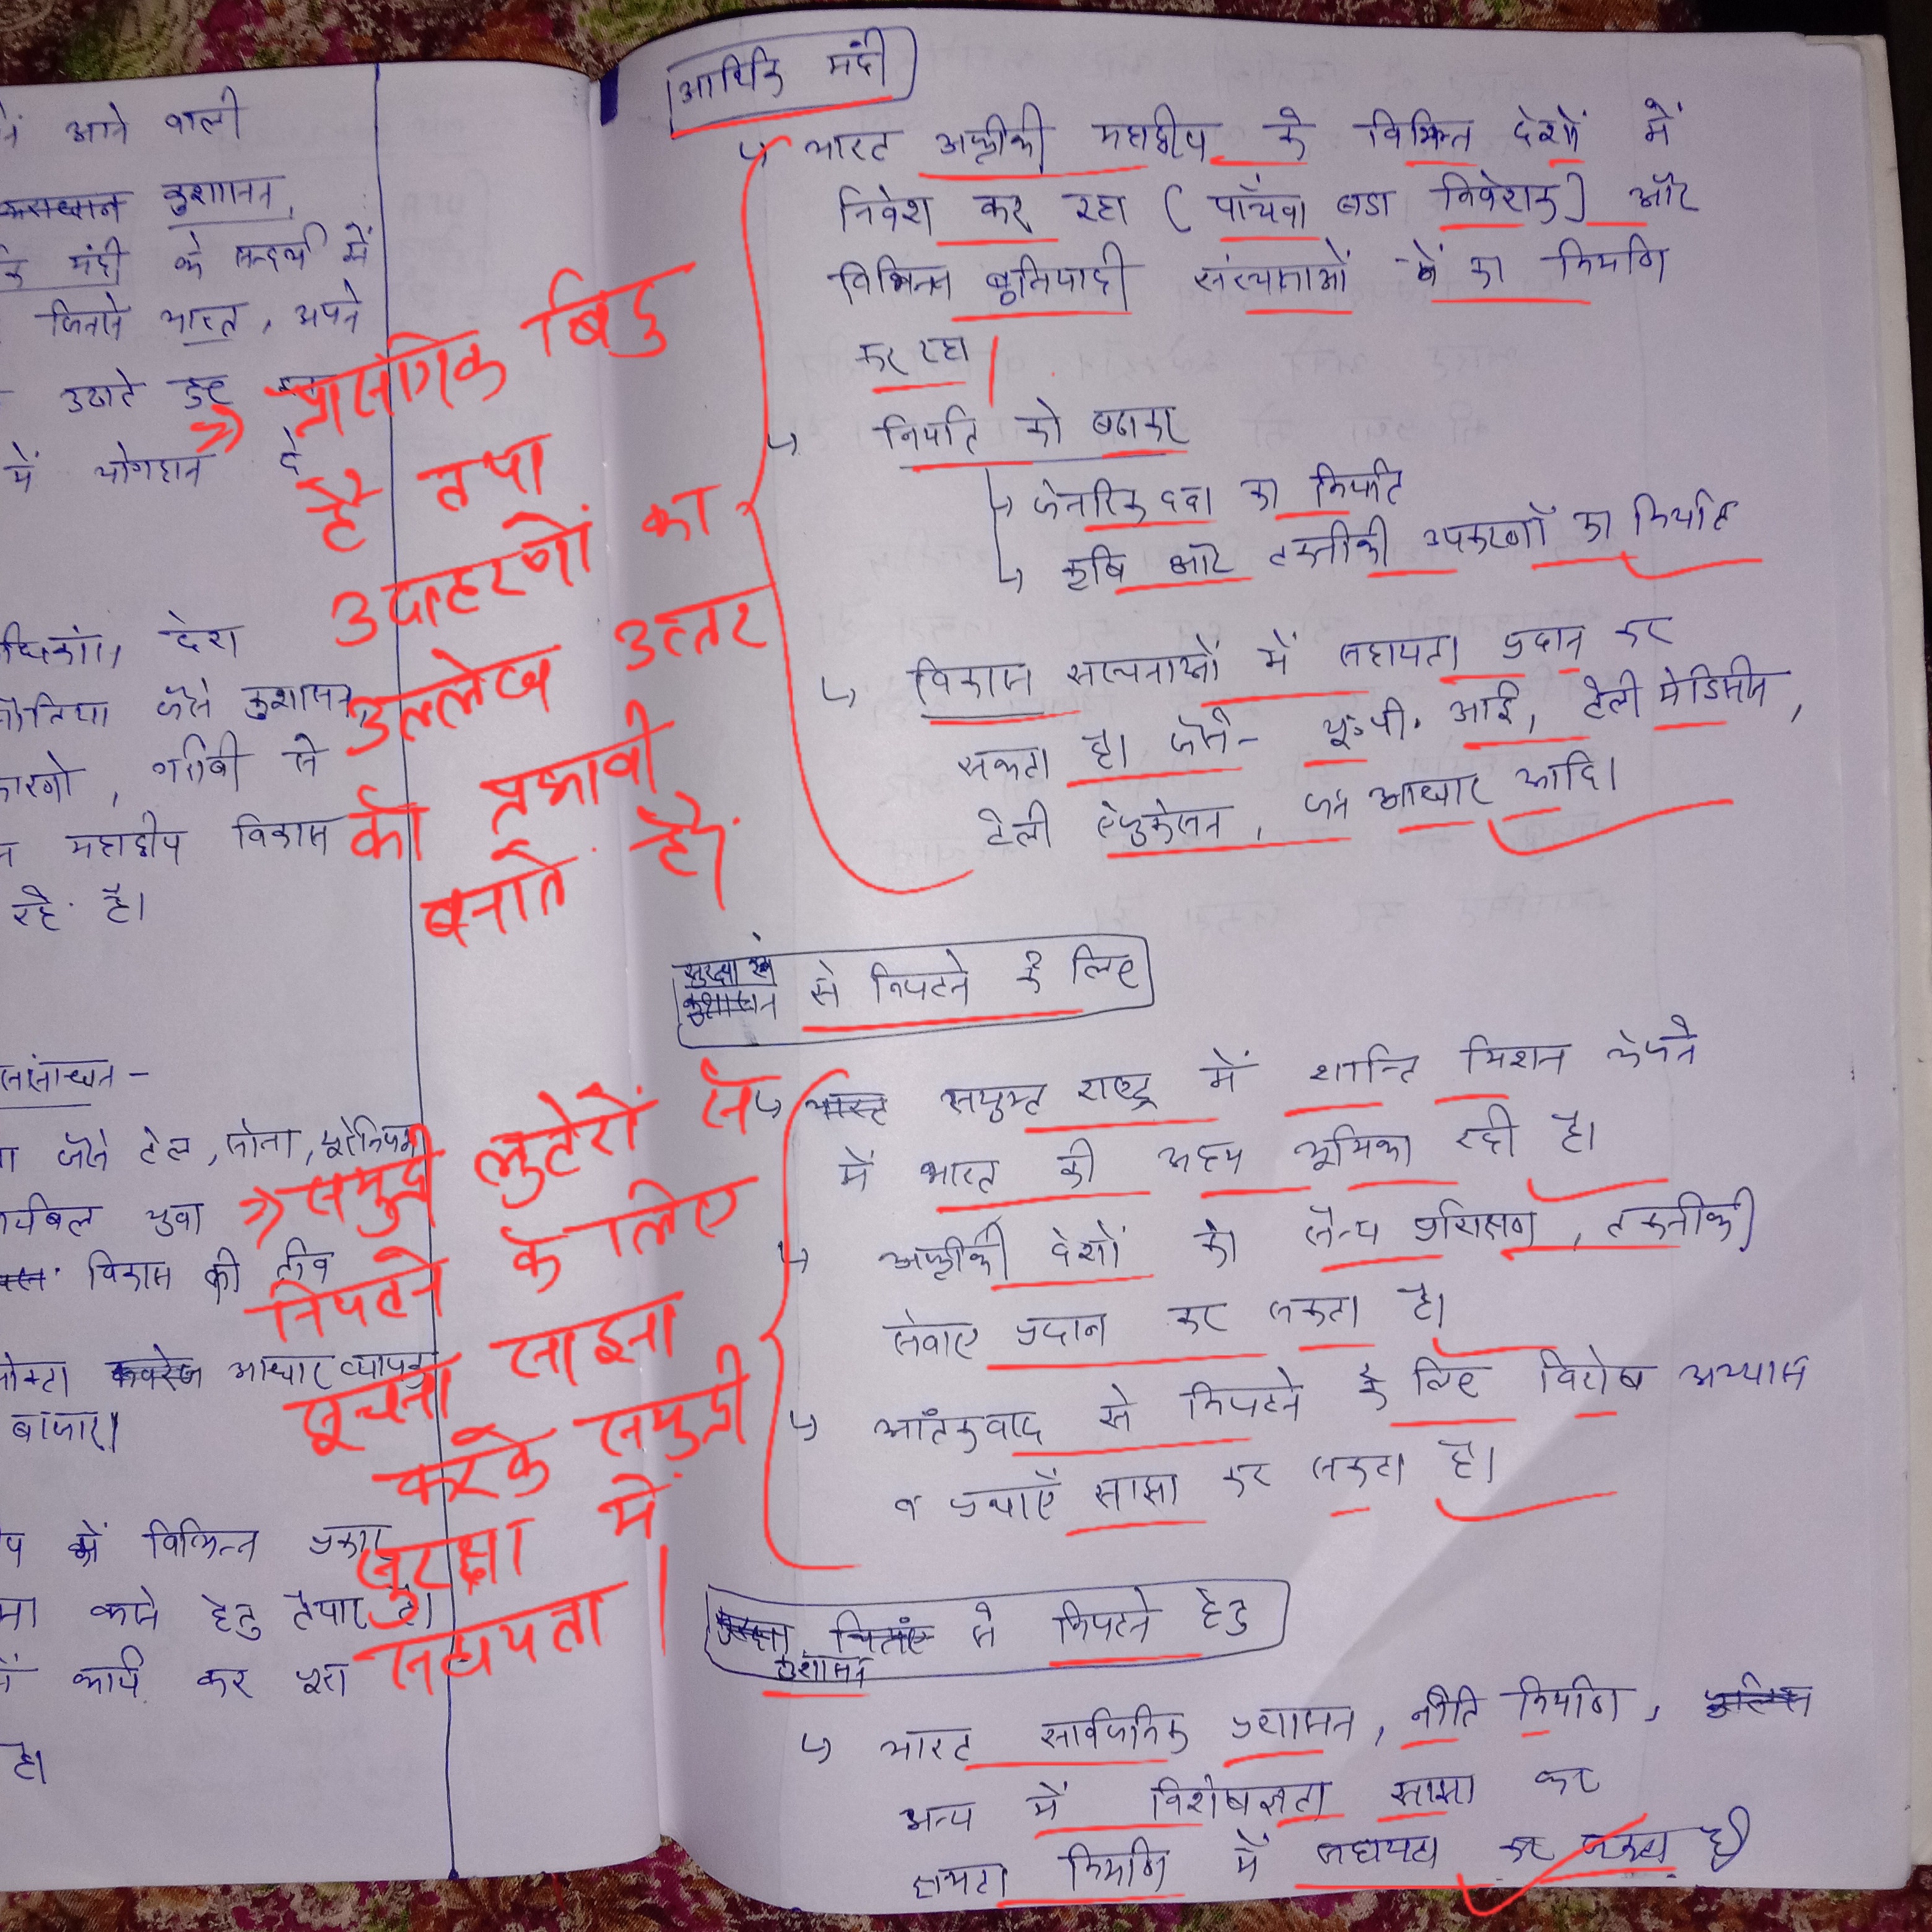 में आने वाली
कुशासन,
मंदी के सन्दर्भ में
जिनसे भारत, अपने
उठाते हुए
में योगदान दे
देश
जैसे कुशासन,
कारणो, गरीबी से
महाद्वीप विकास
रहे है।
संसाधन -
जैसे तेल, सोना, यूरेनियम
युवा
विकास की नींव
आधार व्यापक
बाजार।
में विभिन्न प्रकार
करने हेतु तैयार है।
में कार्य कर पूरा
है।
→ प्रासंगिक बिंदु
है तथा
उदाहरणों का
उल्लेख उत्तर
को प्रभावी
बनाते हैं।
→ समुद्री लुटेरों से
निपटने के लिए
सूचना साझा
करके समुद्री
सुरक्षा में
सहायता।
आर्थिक मंदी
↳ भारत अफ्रीकी महाद्वीप के विभिन्न देशों में
निवेश कर रहा (पाँचवा बडा निवेशक) और
विभिन्न बुनियादी संरचनाओं का निर्माण
कर रहा।
↳ निर्यात को बढाकर
↳ जेनरिक दवा का निर्यात
↳ कृषि और तकनीकी उपकरणों का निर्यात
↳ विकास संरचनाओं में सहायता प्रदान कर
सकता है। जैसे - यू.पी. आई, टेली मेडिसीन,
टेली ऐजुकेशन, जन आधार आदि।
सुरक्षा से निपटने के लिए
↳ संयुक्त राष्ट्र में शान्ति मिशन भेजने
में भारत की अहम भूमिका रही है।
↳ अफ्रीकी देशों को सैन्य प्रशिक्षण, तकनीकी
सेवाए प्रदान कर सकता है।
↳ आंतकवाद से निपटने के लिए विशेष अभ्यास
व प्रथाएँ साझा कर सकता है।
कुशासन से निपटने हेतु
↳ भारत सार्वजनिक प्रशासन, नीति निर्माण,
अन्य में विशेषज्ञता साझा कर
क्षमता निर्माण में सहायता कर सकता है